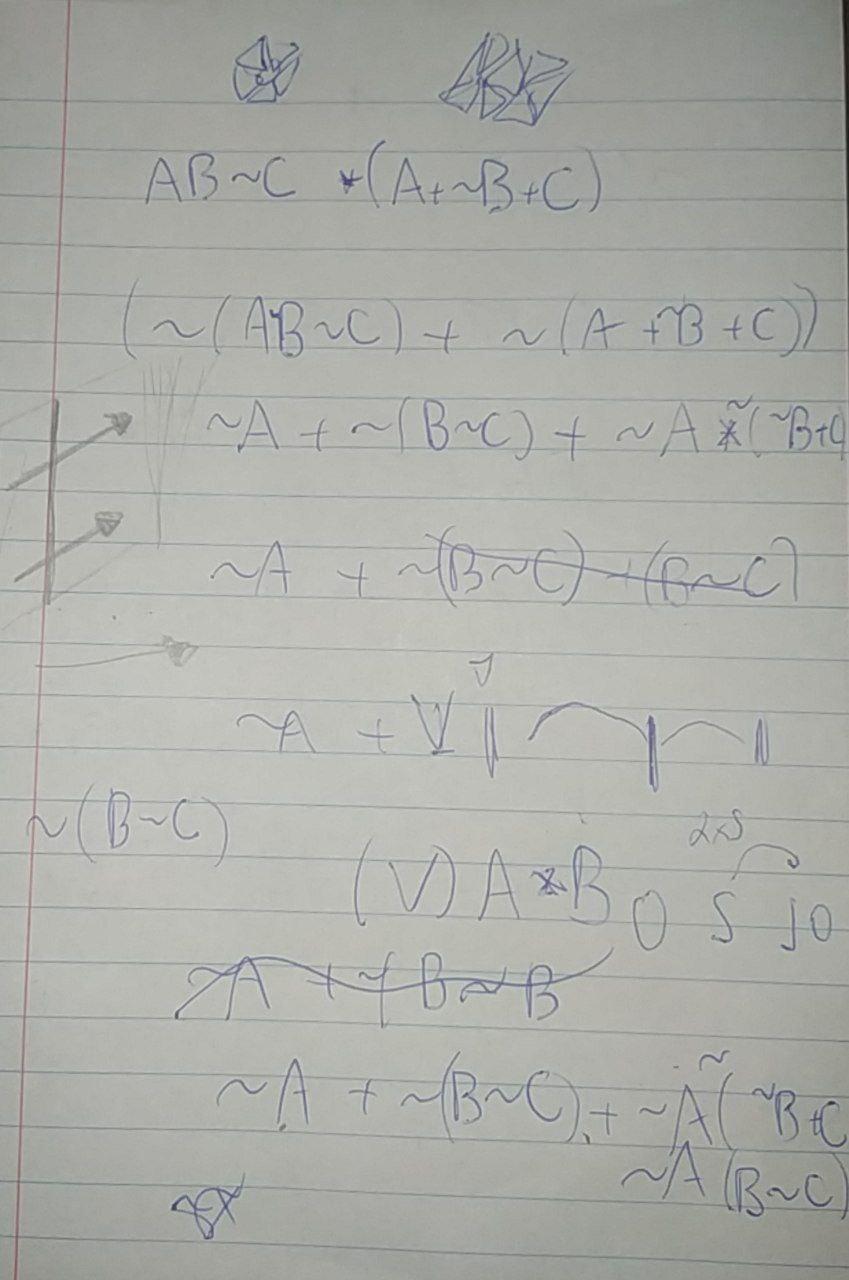 AB~C *(A+~B+C)
(~(AB~C) + ~(A+~B+C))
~A + ~(B~C) + ~A * ~(~B+C)
~A + ~(B~C) + (B~C)
~A + V
~(B~C)
(V) A*B 0 5 10
~A + ~B~B
~A + ~(B~C) + ~A ~(~B+C
~A (B~C)